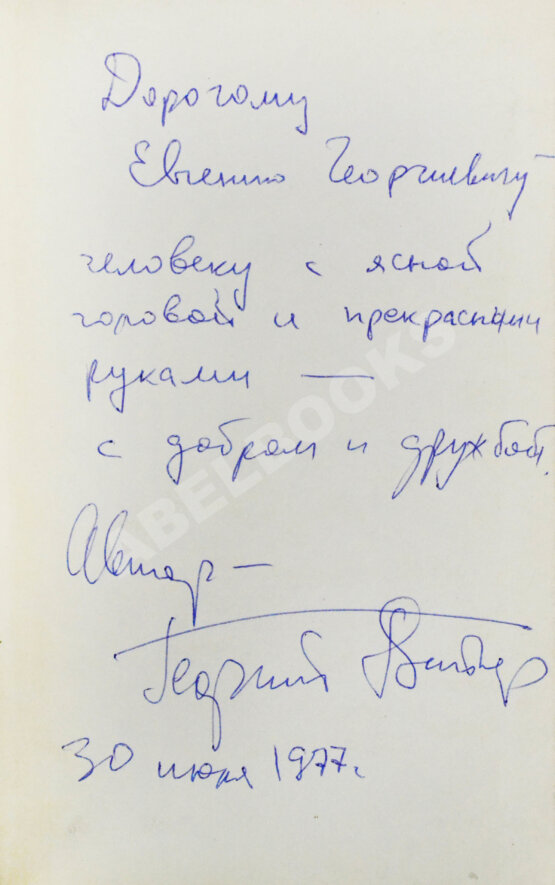 Дорогому
Евгению Георгиевичу
человеку с ясной
головой и прекрасными
руками —
с добром и дружбой.
Автор —
Георгий
30 июня 1977 г.
ABELBOOKS